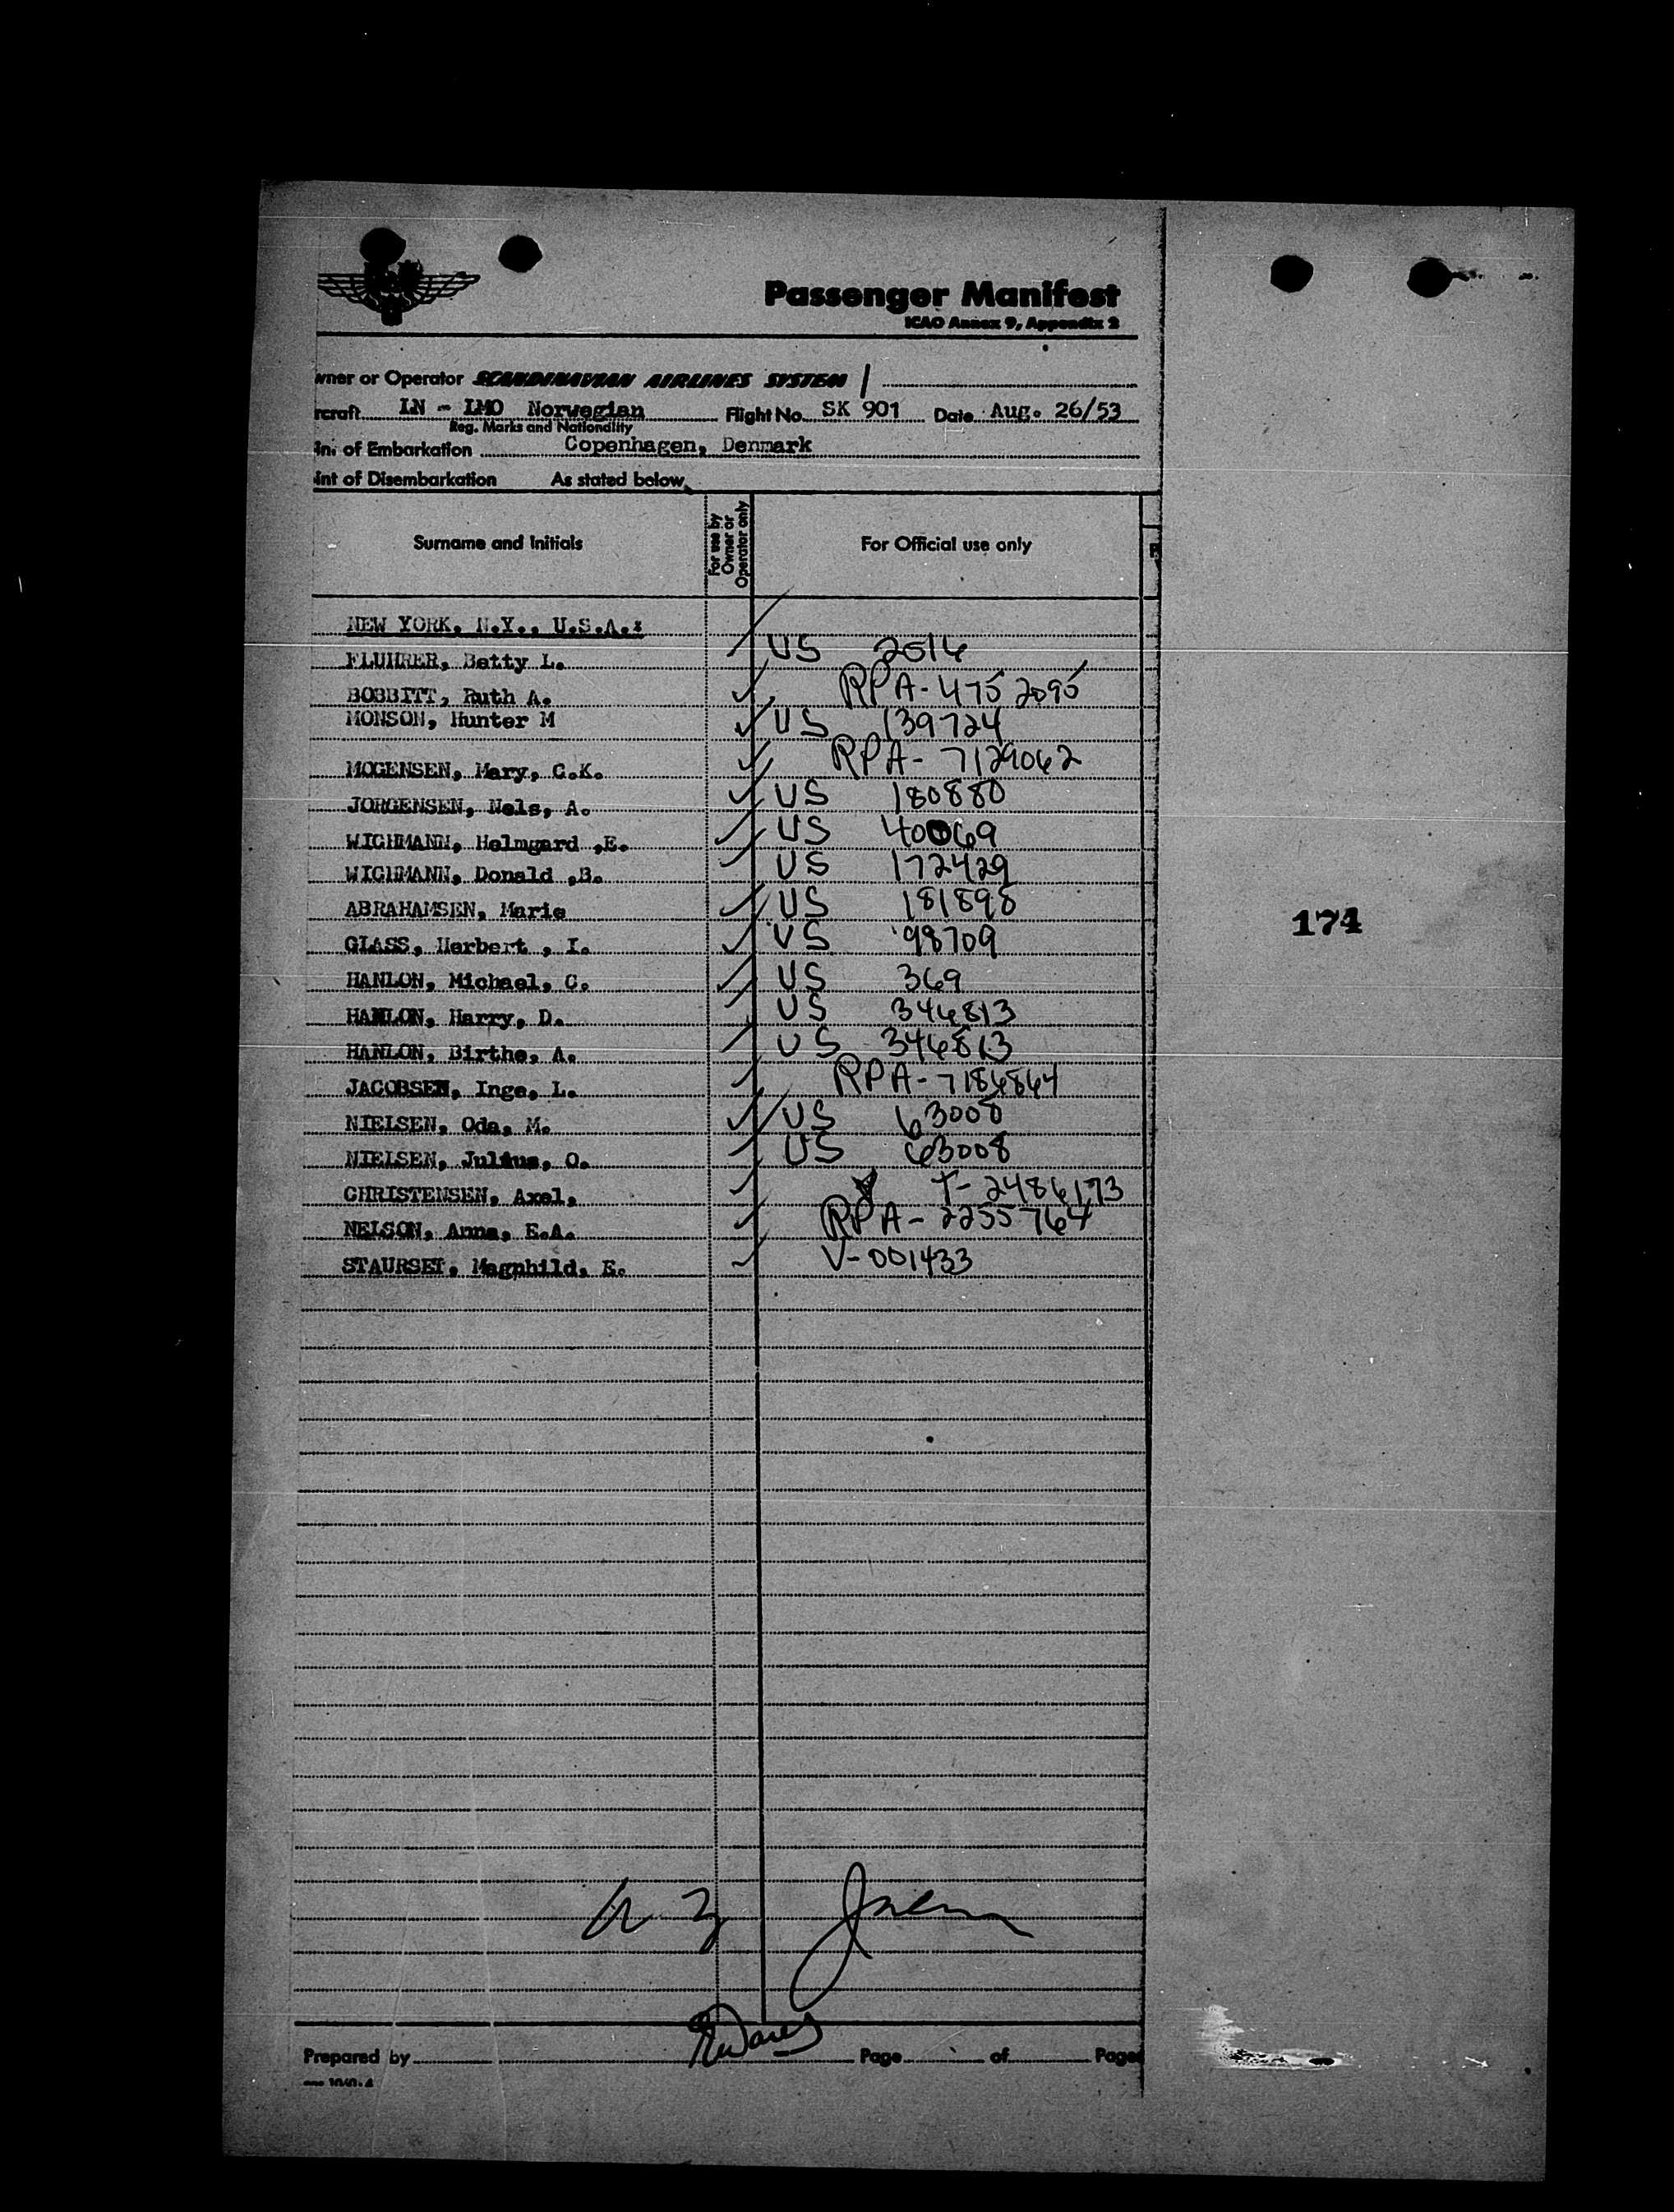 Passenger Manifest
ICAO Annex 9, Appendix 2
wner or Operator SCANDINAVIAN AIRLINES SYSTEM
rcraft LN - LMO Norwegian Flight No. SK 901 Date Aug. 26/53
Reg. Marks and Nationality
of Embarkation Copenhagen, Denmark
int of Disembarkation As stated below
Surname and Initials For use by Owner or Operator only For Official use only
NEW YORK, N.Y., U.S.A.:
FLUHRER, Betty L. US 2514
BOBBITT, Ruth A. RPA-475 2095
MONSON, Hunter M US 139724
MOGENSEN, Mary, C.K. RPA-7129062
JORGENSEN, Nels, A. US 180880
WICHMANN, Helmgard ,E. US 40069
WICHMANN, Donald ,B. US 172429
ABRAHAMSEN, Marie US 181898
GLASS, Herbert , I. US 98709
HANLON, Michael, C. US 369
HANLON, Harry, D. US 346813
HANLON, Birthe, A. US 346813
JACOBSEN, Inge, L. RPA-7186864
NIELSEN, Oda, M. US 63008
NIELSEN, Julius, O. US 63008
CHRISTENSEN, Axel, T-2486173
NELSON, Anna, E.A. RPA-2255764
STAURSET, Magnhild, E. V-001433
174
Prepared by Page of Page